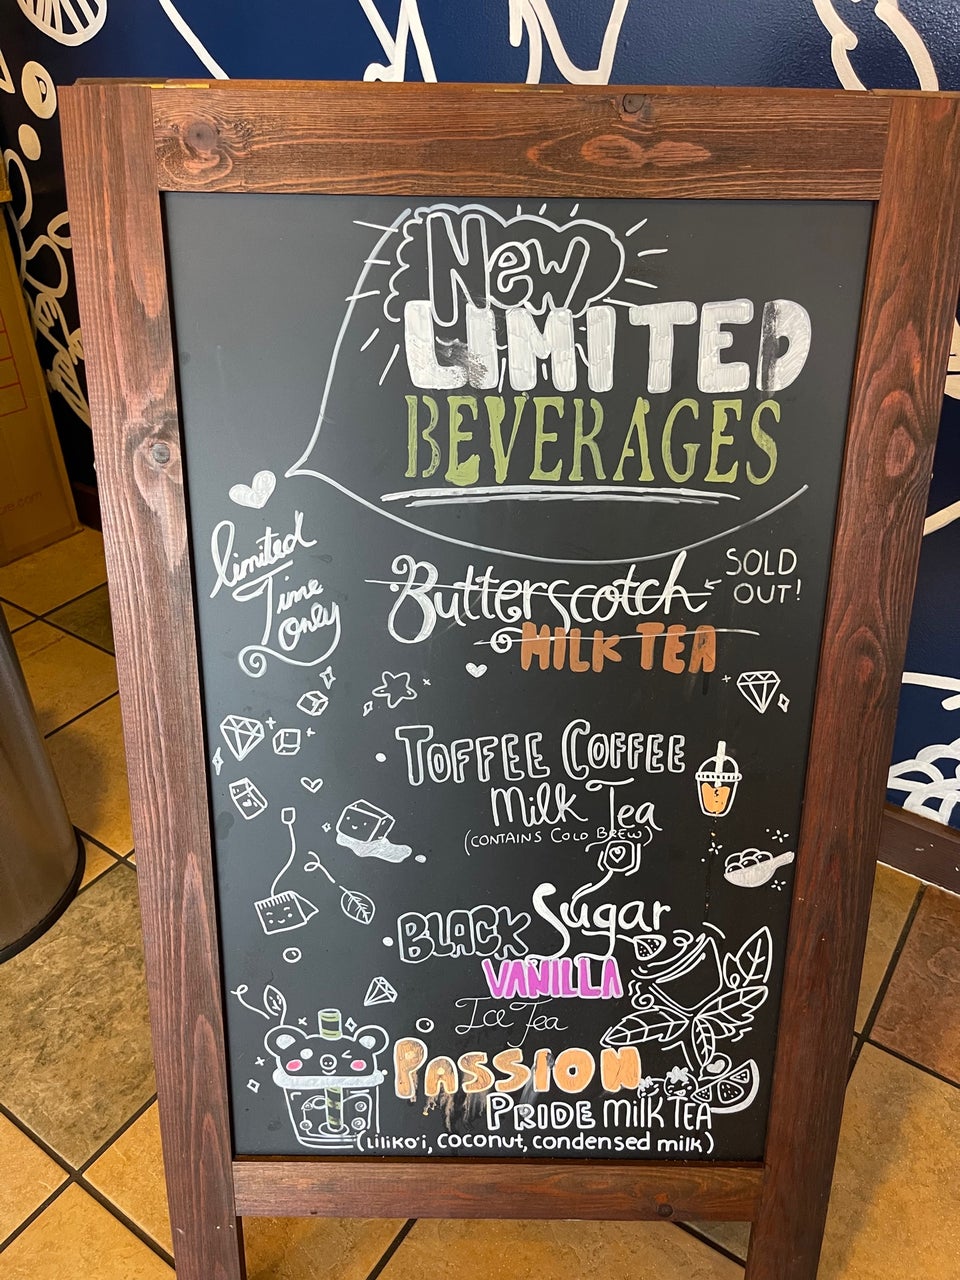 New
LIMITED
BEVERAGES
limited
Time
only
Butterscotch
MILK TEA
SOLD
OUT!
TOFFEE COFFEE
Milk Tea
(CONTAINS COLD BREW)
BLACK Sugar
VANILLA
Ice Tea
PASSION
PRIDE milk TEA
(Liliko'i, coconut, condensed milk)